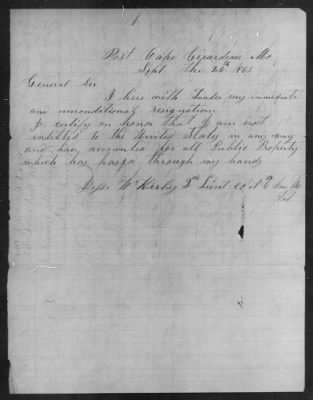 Post Cape Girardeau Mo
Sept The 26th 1863
General Sir
I here with Tender my immediate
and unconditional resignation.
I certify on honor that I am not
indebted to the United States in any way
and have accounted for all Public Property
which has pased through my hands
Jesse W Kirby 2nd Lieut co
Vol